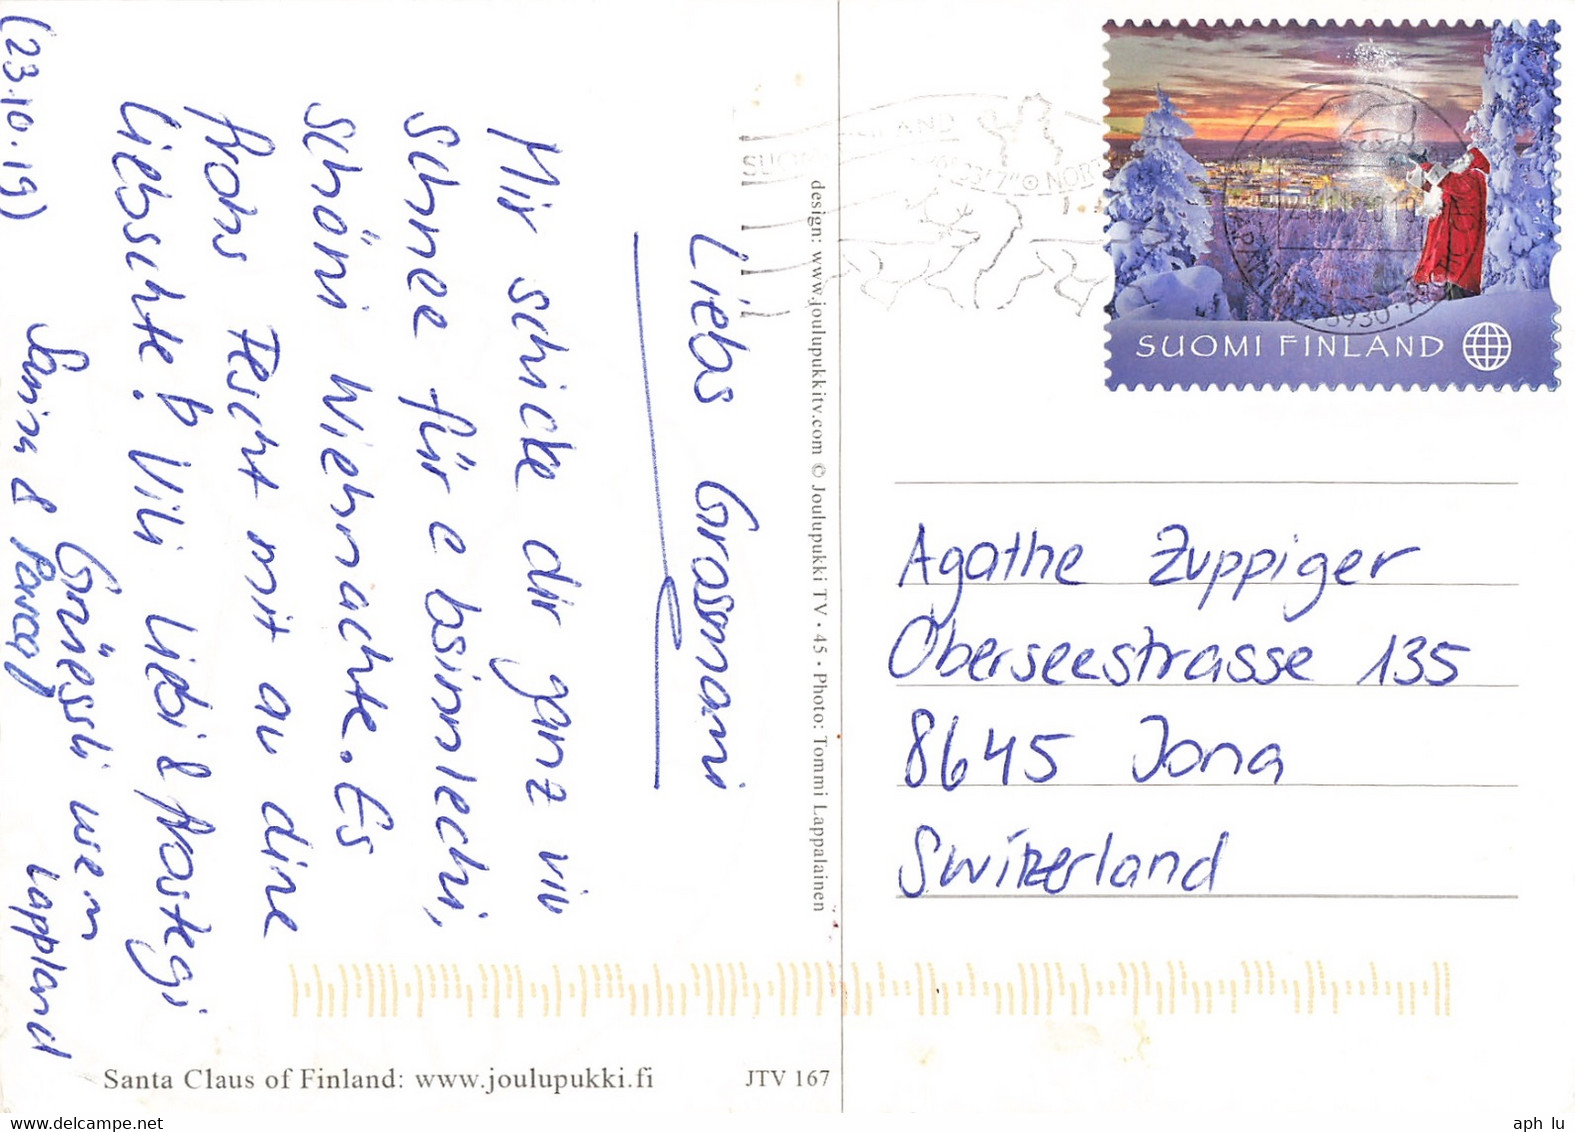 Liebs Grosmami
Mir schicke dir ganz viv
Schnee für e bsinnlechi,
schöni Wiehnachte. Es
frohs Fescht mit au dine
Liebschte! Vili liebi & frostegi
Grüessli usem
Lappland
(23.10.19)
design: www.joulupukkitv.com © Joulupukki TV • 45 • Photo: Tommi Lappalainen
SUOMI FINLAND
Agathe Zuppiger
Oberseestrasse 135
8645 Jona
Switzerland
Santa Claus of Finland: www.joulupukki.fi
JTV 167
aph lu